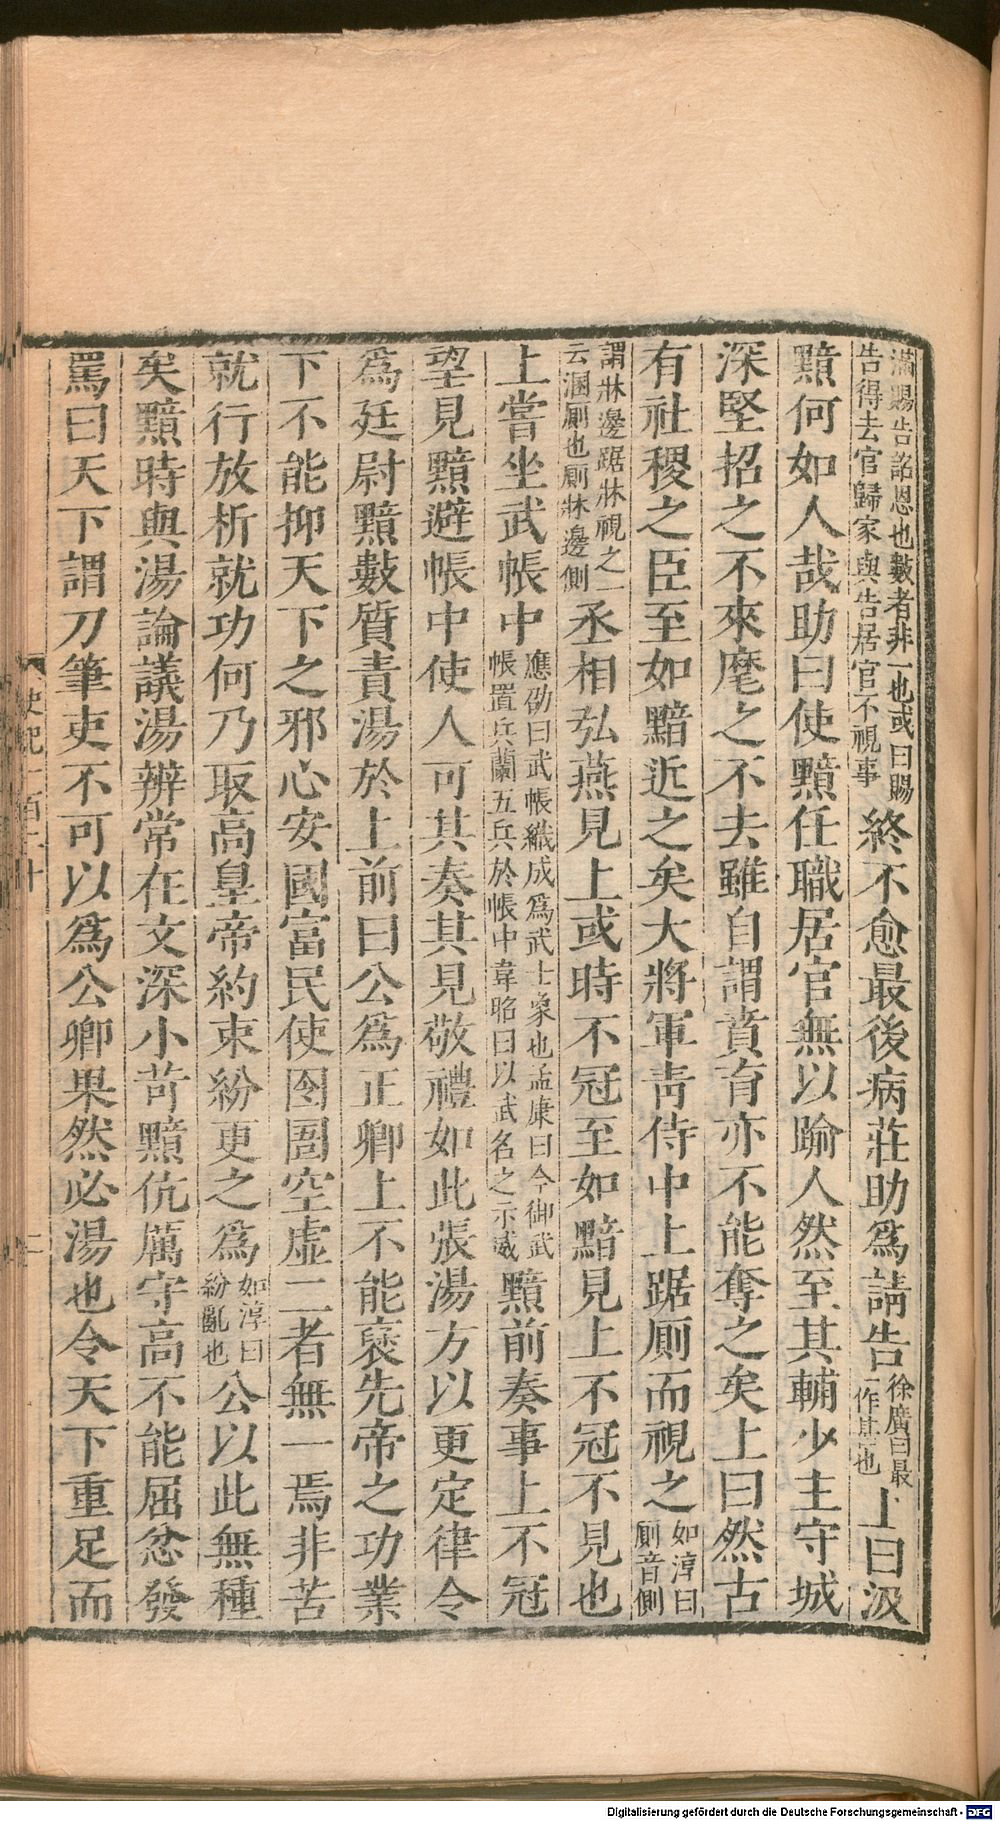 滿賜告詔恩也數者非一也或曰賜告得去官歸家與告居官不視事終不愈最後病莊助爲請告徐廣曰最一作其也上曰汲
黯何如人哉助曰使黯任職居官無以踰人然至其輔少主守城
深堅招之不來麾之不去雖自謂賁育亦不能奪之矣上曰然古
有社稷之臣至如黯近之矣大將軍靑侍中上踞厠而視之如淳曰厠音側
謂牀邊踞牀視之一云溷厠也厠牀邊側丞相弘燕見上或時不冠至如黯見上不冠不見也
上嘗坐武帳中應劭曰武帳織成爲武士象也孟康曰今御武帳置兵蘭五兵於帳中韋昭曰以武名之示威黯前奏事上不冠
望見黯避帳中使人可其奏其見敬禮如此張湯方以更定律令
爲廷尉黯數質責湯於上前曰公爲正卿上不能襃先帝之功業
下不能抑天下之邪心安國富民使囹圄空虛二者無一焉非苦
就行放析就功何乃取高皇帝約束紛更之爲如淳曰紛亂也公以此無種
矣黯時與湯論議湯辨常在文深小苛黯伉厲守高不能屈忿發
罵曰天下謂刀筆吏不可以爲公卿果然必湯也令天下重足而
史記一百二十
二
Digitalisierung gefördert durch die Deutsche Forschungsgemeinschaft - DFG